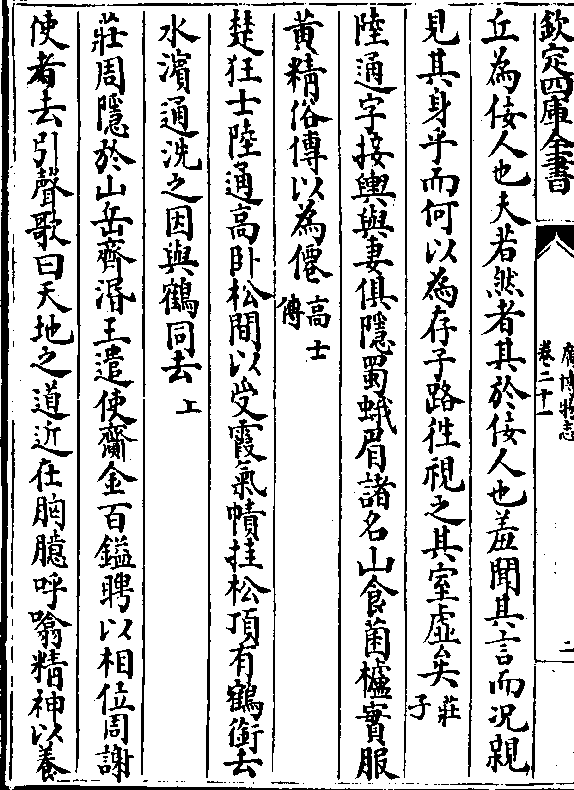 欽定四庫全書
廣博物志
卷二十一
二
丘為佞人也夫若然者其於佞人也羞聞其言而况親
見其身乎而何以為存子路徃視之其室虛矣莊子
陸通字接輿與妻俱隱蜀蛾眉諸名山食菌櫨實服
黄精俗傳以為僊高士傳
楚狂士陸通高卧松間以受霞氣幘挂松頂有鶴銜去
水濱通洗之因與鶴同去上
莊周隱於山岳齊湣王遣使齎金百鎰聘以相位周謝
使者去引聲歌曰天地之道近在胸臆呼噏精神以養